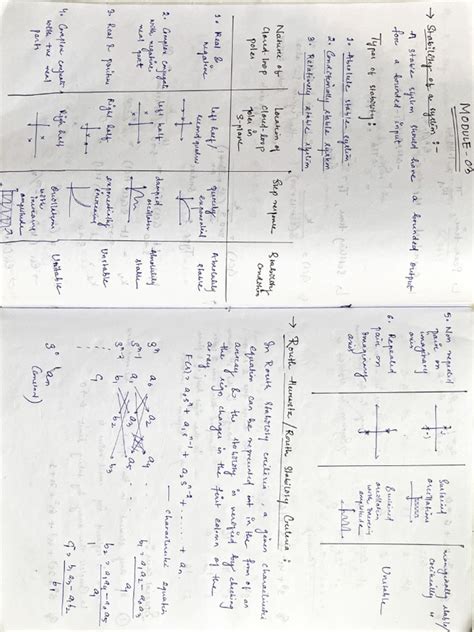 MODULE-03
→ Stability of a system :-
A stable system should have a bounded output
for a bounded input.
Types of stability:
1. Absolute stable system
2. Conditionally stable system
3. Relatively stable system
Nature of closed loop poles
Location of closed-loop poles in s-plane
Step response
Stability condition
1. Real & negative
left half/
Absolutely stable
2. Complex conjugate with negative real part
left half
damped oscillation
Absolutely stable
3. Real & positive
Right half
exponentially increasing
Unstable
4. Complex conjugate with +ve real parts
Right half
Oscillations with increasing amplitude
Unstable
5. Non repeated pair on imaginary axis
oscillations
marginally stable/
6. Repeated pair on imaginary axis
oscillation with
amplitude
Unstable
→ Routh Hurwitz/Routh Stability Criteria :
In Routh Stability criteria, a given characteristic
equation can be represented in the form of an
array & the stability is verified by checking
the sign changes in the first column of the
array
F(s) = a₀sⁿ + a₁sⁿ⁻¹ + a₂sⁿ⁻² + ... + aₙ
— characteristic equation
sⁿ a₀ a₂ a₄
sⁿ⁻¹ a₁ a₃ a₅
sⁿ⁻² b₁ b₂ b₃
c₁
s⁰ aₙ
(Constant)
b₁ = a₁a₂ - a₀a₃ / a₁
b₂ = a₁a₄ - a₀a₅ / a₁
c₁ = b₁a₃ - a₁b₂ / b₁